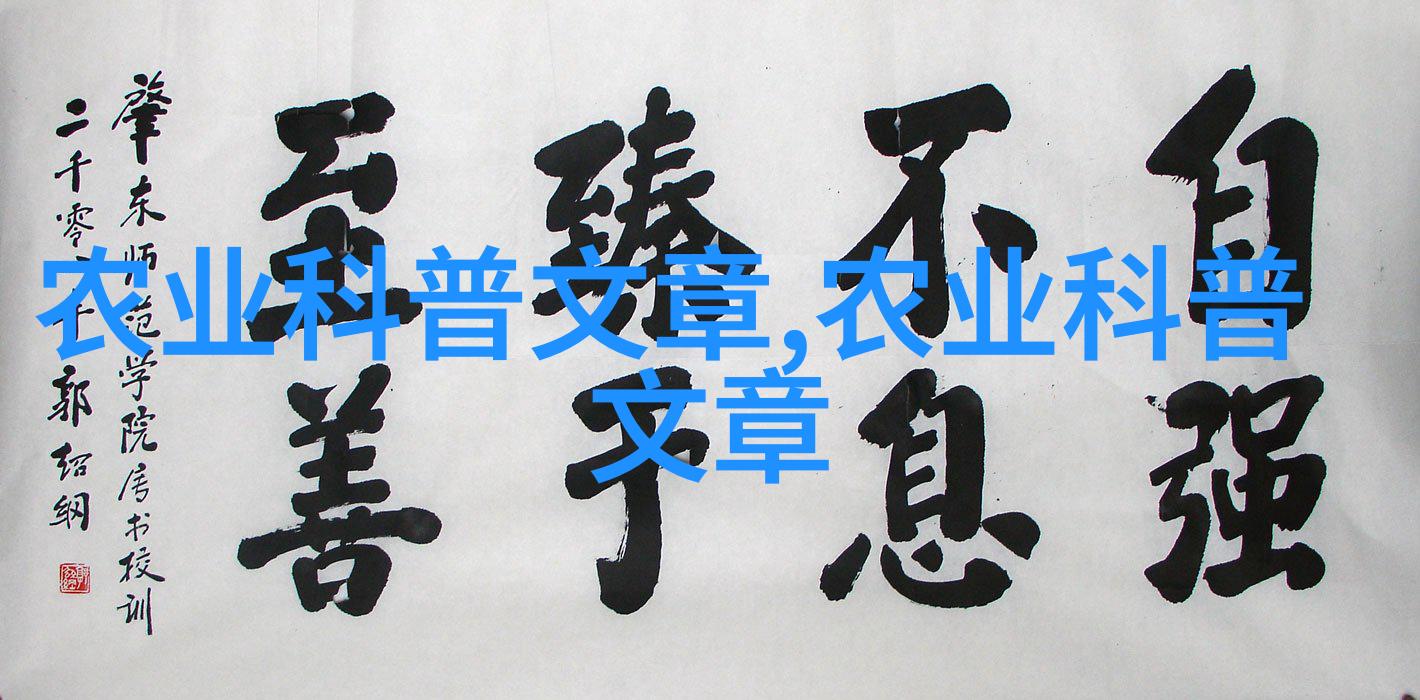 农业科普文章,农业科普
文章
自强
不息
臻予
至善
肇东师范学院属书校训
二千零
郭绍纲